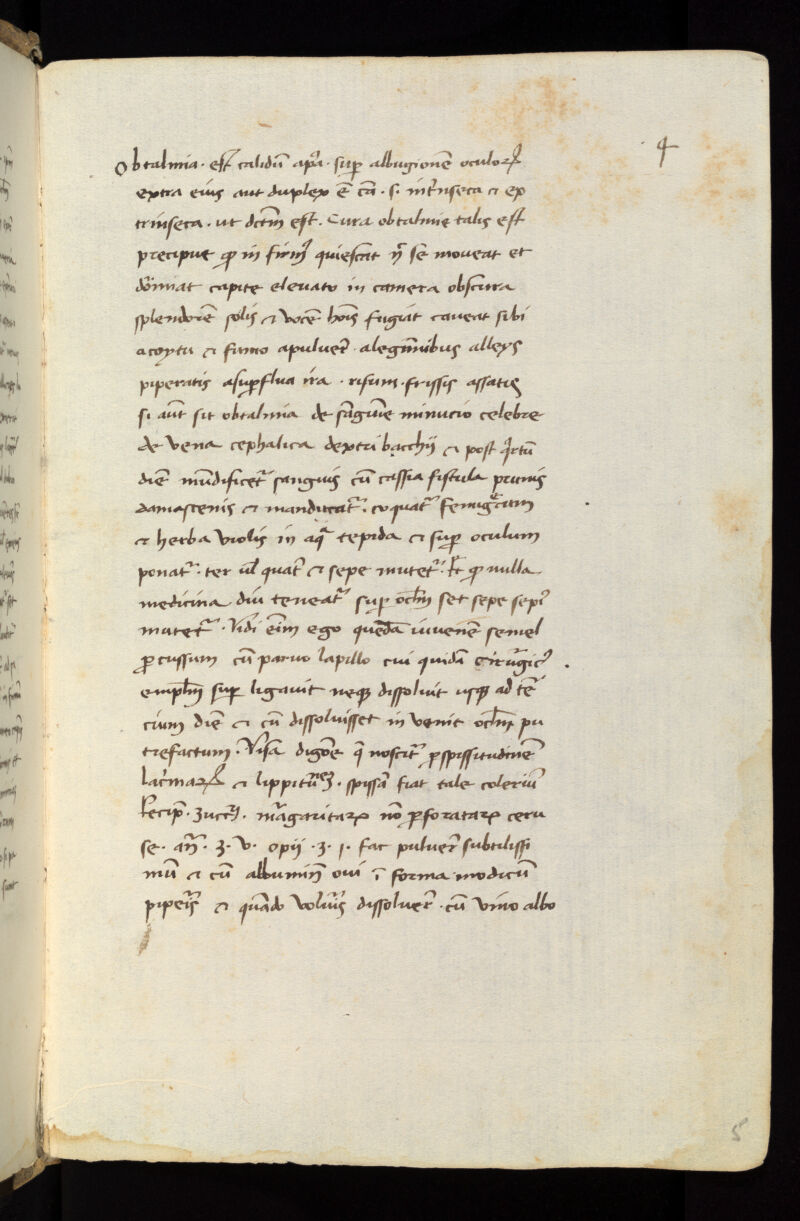 4
Obtalmia · est calidũ apã · sup albugionẽ oculoꝝ
extra eius aut duplex ẽ cã · s · int̃nseca ⁊ ex
trinseca · ut dctm̃ est · Cura obtalmie talis est
precipue ꝙ in firmꝰ quiescat ñ se moveat et
dõrmiat capite elevato in camera obscura
splendorẽ solis ⁊ vocẽ hoĩs fugiat caveat sibi
acoytu ⁊ fumo apulver̃ · alegũnibus alleys
piperatis asupflua ira · risum · frissis assatis
si aũt sit obtalmia de sãguine minucio celebre
de vena cephalica dextri bacchij ⁊ post q̃rtũ
diẽ mũdificet̃ sanguis cũ cassia fistula prunis
damascenis ⁊ manducat̃ · coquat̃ fenugr̃cum
⁊ herba violis in aq̃ tepida ⁊ sup oculum
ponat̃ · ter ul̃ quat̃ ⁊ sepe mutet̃ · Et ꝙ nulla
medicina diu teneat̃ sup oclm̃ set sepe sepiꝰ
mutet̃ · Vidi eĩm ego quẽdã iuvenẽ semel
ꝑcussum cũ parvo lapillo cui quidã cirũgicꝰ
emplm̃ sup ligavit neqꝫ dissolvit usqꝫ ad ter̃
cium diẽ ⁊ cũ dissolvisset in venit oclm̃ pu
trefactum · Visa digõne q̃ noscit̃ ꝑ spissitudinẽ
lacr̃maꝝ ⁊ lippitũeꝫ · spissã fiat tale coleriũ
Recip̃ · zuccꝶ · mãgaritaꝝ nõ ꝑforataꝝ ceru
se · añ · ʒ · v · opij · ʒ · j · fac pulver̃ subtilissi
mũ ⁊ cũ albumiñ ovi ĩ forma modicũ
pipeꝶs ⁊ quãdo volũis dissolver̃ · cũ vino albo
5